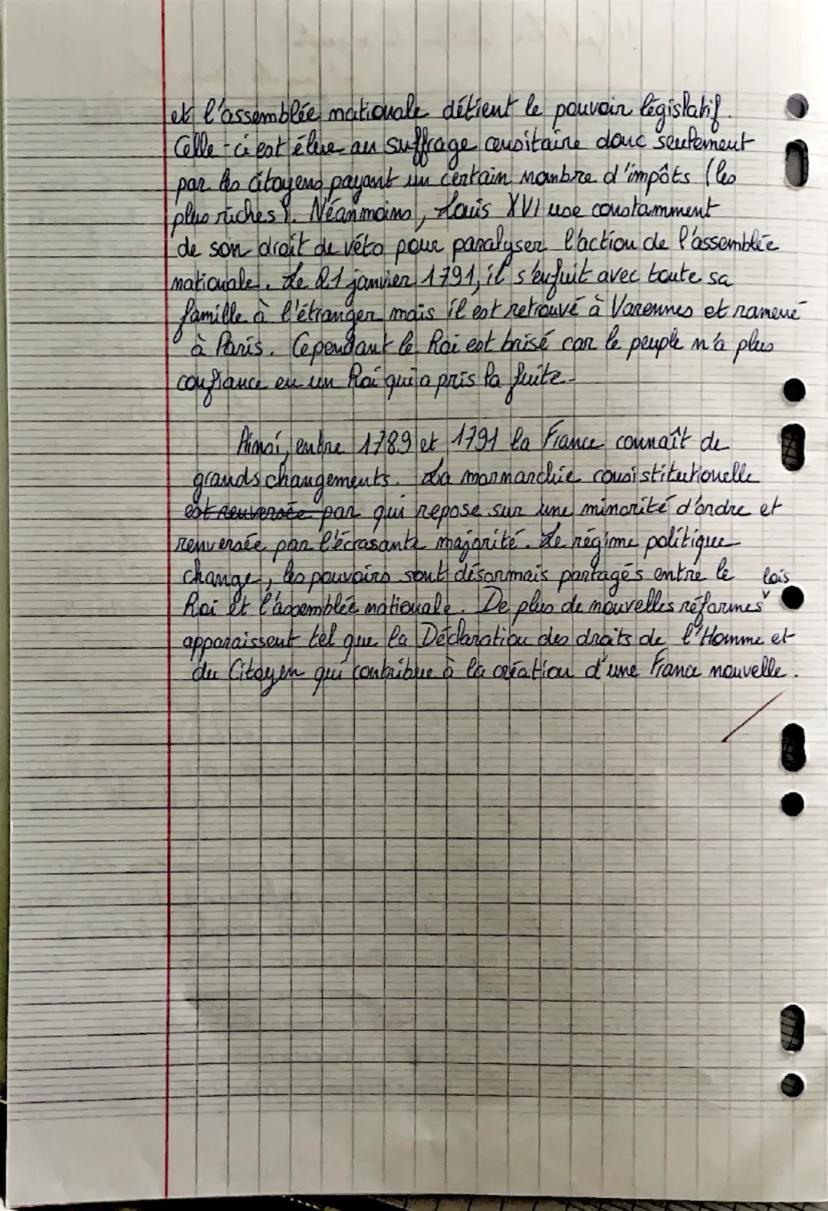 et l'assemblée nationale détient le pouvoir législatif.
Celle-ci est élue au suffrage censitaire donc seulement
par les citoyens payant un certain nombre d'impôts (les
plus riches). Néanmoins, Louis XVI use constamment
de son droit de véto pour paralyser l'action de l'assemblée
nationale. Le 21 janvier 1791, il s'enfuit avec toute sa
famille à l'étranger mais il est retrouvé à Varennes et ramené
à Paris. Cependant le Roi est brisé car le peuple n'a plus
confiance en un Roi qui a pris la fuite.
Ainsi, entre 1789 et 1791 la France connaît de
grands changements. La monmarchie consistitutionelle
est renversée par qui repose sur une minorité d'ordre et
renversée par l'écrasante majorité. Le régime politique
change, les pouvoirs sont désormais partagés entre le
Roi et l'assemblée nationale. De plus de nouvelles réformes lois
apparaissent tel que la Déclaration des droits de l'Homme et
du Citoyen qui contribue à la création d'une France nouvelle.